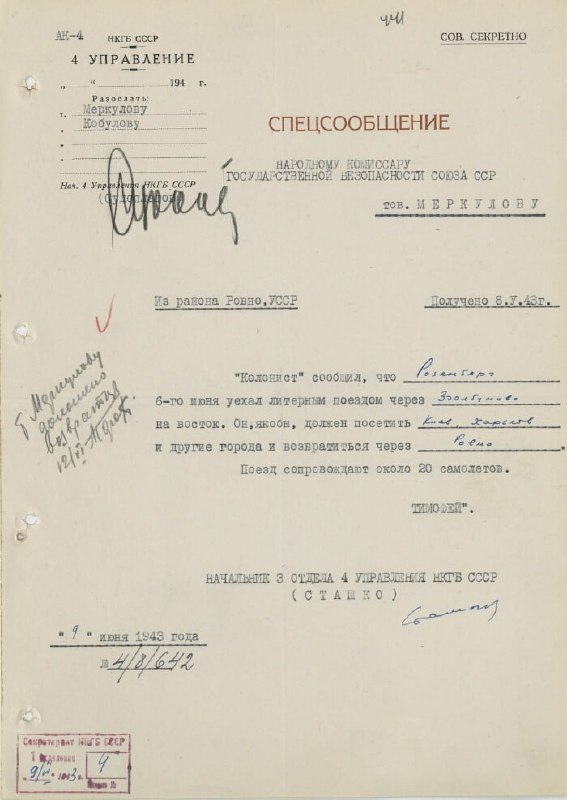 АК-4
НКГБ СССР
4 УПРАВЛЕНИЕ
„ “ 194 г.
Разослать:
т. Меркулову
Кобулову
Нач. 4 Управления НКГБ СССР
(Судоплатов)
СОВ. СЕКРЕТНО
СПЕЦСООБЩЕНИЕ
НАРОДНОМУ КОМИССАРУ
ГОСУДАРСТВЕННОЙ БЕЗОПАСНОСТИ СОЮЗА ССР
тов. МЕРКУЛОВУ
Из района Ровно,УССР
Получено 8.У.43г.
Т Меркулову
доложено
возвратил
12/VI
"Колонист" сообщил, что Розенберг
6-го июня уехал литерным поездом через Здолбуново
на восток. Он,якобы, должен посетить Киев, Харьков
и другие города и возвратиться через Ровно
Поезд сопровождают около 20 самолетов.
ТИМОФЕЙ".
НАЧАЛЬНИК 3 ОТДЕЛА 4 УПРАВЛЕНИЯ НКГБ СССР
(СТАШКО)
"9" июня 1943 года
№ 4/8/642
Секретариат НКГБ СССР
1 Отделение
"9/VI 1943г.